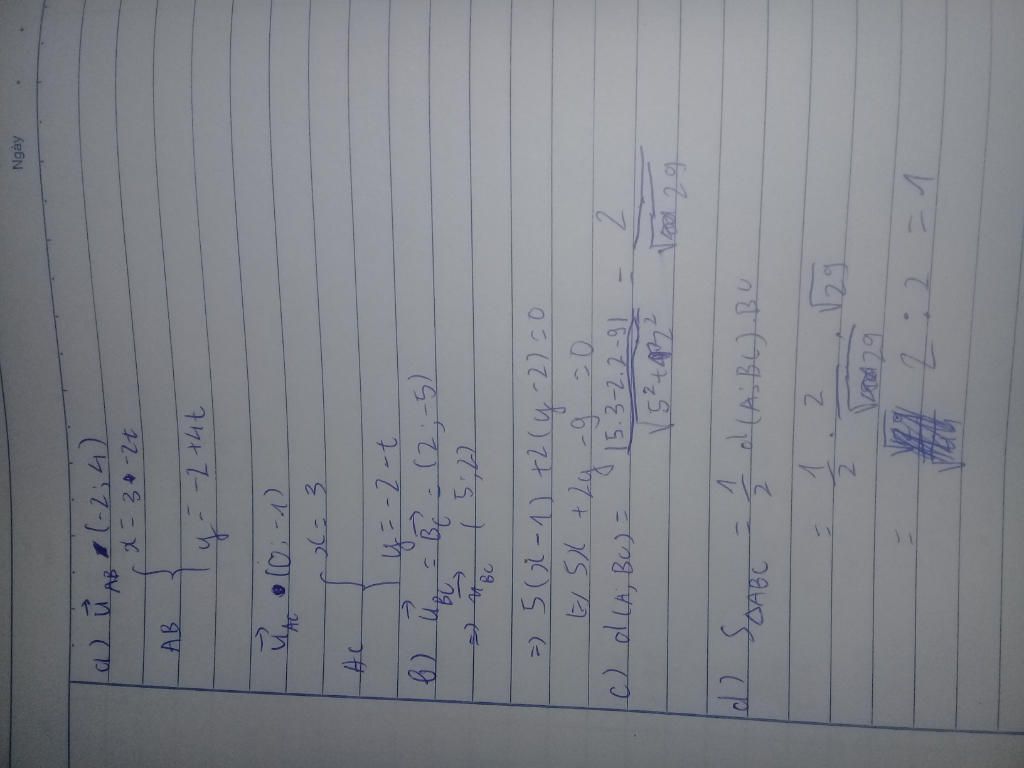 Ngày
a) u⃗ AB (-2; 4)
AB { x = 3 - 2t
y = -2 + 4t
u⃗ AC (0; -1)
AC { x = 3
y = -2 - t
b) u⃗ BC = BC⃗ = (2; -5)
=> n⃗ BC (5; 2)
=> 5(x - 1) + 2(y - 2) = 0
<=> 5x + 2y - 9 = 0
c) d(A; BC) = |5.3 - 2.2 - 9| / √(5² + 2²) = 2 / √29
d) S△ABC = 1/2 d(A; BC). BC
= 1/2 . 2/√29 . √29
= 2 : 2 = 1